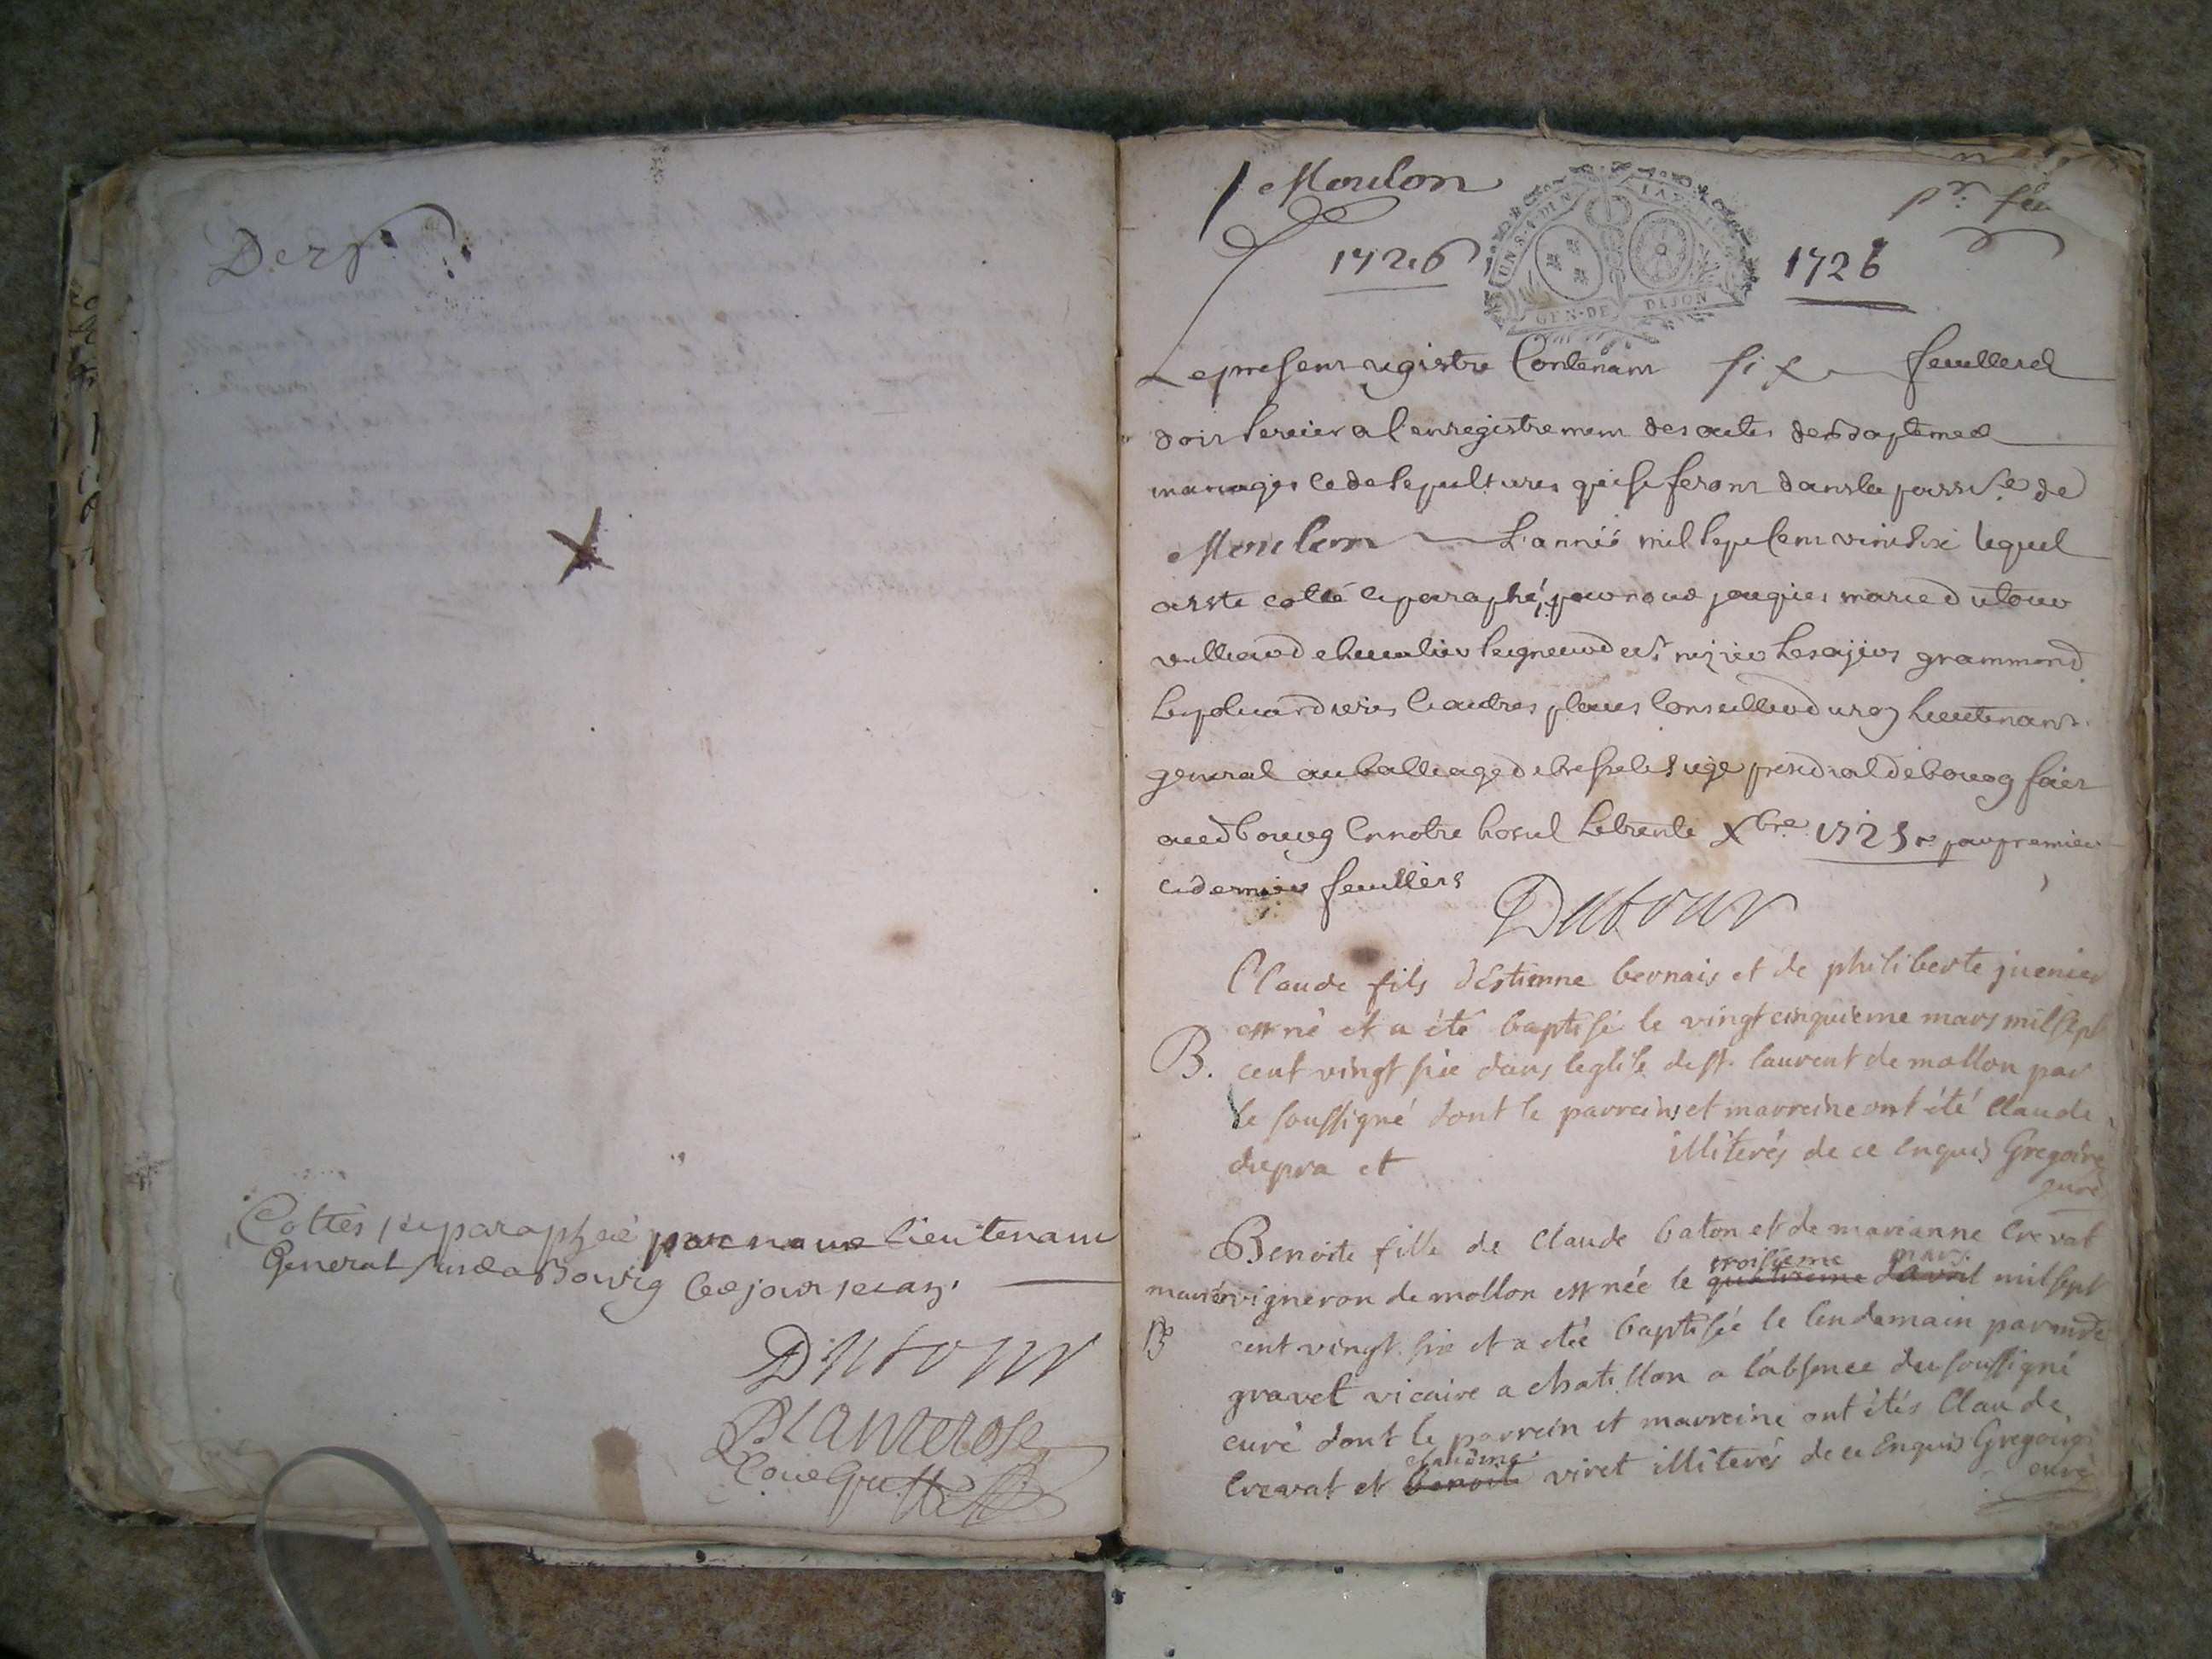 Der
Cottés et paraphé par nous lieutenant
General susd a Bourg les jour et an
Dutour
Coue Greffe
1 Moulon
pr feu
1726
1726
UN S. 4 DEN
GEN. DE DIJON
Le present registre Contenant six feuillets
doit servir a l'enregistrement des actes des baptemes
mariages et de sepultures qui se feront dans la parrse de
Moulon L'année mil sept cent vint six lequel
a esté cotté et paraphé par nous jacques marie dutour
vulliard chevallier seigneur de st nizier grammond
et autres places Conseiller du roy lieutenant
general au balliage de bresse et siege presidial de bourg fait
aud bourg en notre hostel le trente Xbre 1725 et par premier
et dernier feuillets
Dutour
Claude fils d'Estienne bernais et de philiberte juenier
est né et a été baptisé le vingt cinquieme mars mil sept
B. cent vingt six dans leglise de st. laurent de mollon par
le soussigné dont le parrein et marreine ont été Claude
dupra et illiterés de ce enquis Gregoire
curé
Benoite fille de Claude baton et de marianne Crevat
troisieme mars
mariés vigneron de mollon est née le quatrieme d'avril mil sept
B cent vingt six et a eté baptisée le lendemain par
gravet vicaire a chatillon a l'absence du soussigné
curé dont le parrein et marreine ont étés Claude
claudine
Crevat et benoite viret illiterés de ce Enquis Gregoire
curé